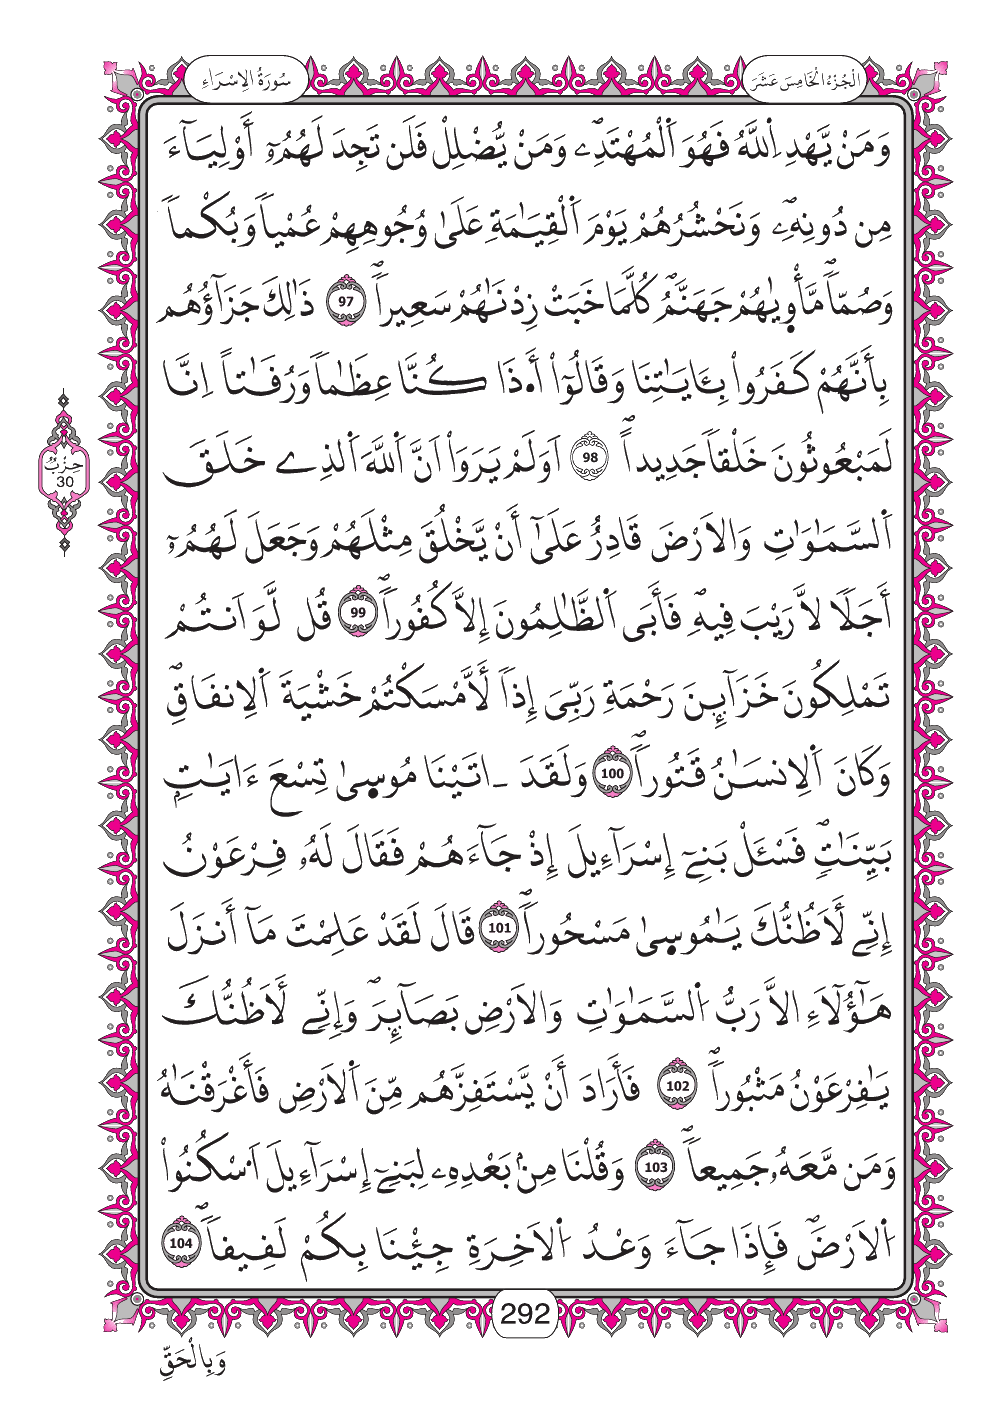 الْجُزْءُ الْخَامِسَ عَشَرَ
سُورَةُ الْاِسْرَاءِ
وَمَنْ يَّهْدِ اِ۬للَّهُ فَهُوَ اَ۬لْمُهْتَدِۦۖ وَمَنْ يُّضْلِلْ فَلَن تَجِدَ لَهُمُۥٓ أَوْلِيَآءَ
مِن دُونِهِۦۖ وَنَحْشُرُهُمْ يَوْمَ اَ۬لْقِيَٰمَةِ عَلَىٰ وُجُوهِهِمْ عُمْياً وَبُكْماً
وَصُمّاًۖ مَّأْو۪يٰهُمْ جَهَنَّمُۖ كُلَّمَا خَبَتْ زِدْنَٰهُمْ سَعِيراًۖ 97 ذَٰلِكَ جَزَآؤُهُم
بِأَنَّهُمْ كَفَرُواْ بِـَٔايَٰتِنَا وَقَالُوٓاْ أَ۟ذَا كُنَّا عِظَٰماً وَرُفَٰتاً اِنَّا
لَمَبْعُوثُونَ خَلْقاً جَدِيداًۖ 98 اَوَلَمْ يَرَوَاْ اَنَّ اَ۬للَّهَ اَ۬لذِے خَلَقَ
اَ۬لسَّمَٰوَٰتِ وَالَارْضَ قَادِرٌ عَلَىٰٓ أَنْ يَّخْلُقَ مِثْلَهُمْ وَجَعَلَ لَهُمُۥٓ
أَجَلًا لَّا رَيْبَ فِيهِۖ فَأَبَى اَ۬لظَّٰلِمُونَ إِلَّا كُفُوراًۖ 99 قُل لَّوَ اَنتُمْ
تَمْلِكُونَ خَزَآئِنَ رَحْمَةِ رَبِّىَ إِذاً لَّأَمْسَكْتُمْ خَشْيَةَ اَ۬لِانفَاقِۖ
وَكَانَ اَ۬لِانسَٰنُ قَتُوراًۖ 100 وَلَقَدَ ـ اتَيْنَا مُوس۪يٰ تِسْعَ ءَايَٰتِۢ
بَيِّنَٰتٖۖ فَسْـَٔلْ بَنِےٓ إِسْرَآءِيلَ إِذْ جَآءَهُمْ فَقَالَ لَهُۥ فِرْعَوْنُ
إِنِّے لَأَظُنُّكَ يَٰمُوس۪يٰ مَسْحُوراًۖ 101 قَالَ لَقَدْ عَلِمْتَ مَآ أَنزَلَ
هَٰٓؤُلَآءِ الَّا رَبُّ اُ۬لسَّمَٰوَٰتِ وَالَارْضِ بَصَآئِرَۖ وَإِنِّے لَأَظُنُّكَ
يَٰفِرْعَوْنُ مَثْبُوراًۖ 102 فَأَرَادَ أَنْ يَّسْتَفِزَّهُم مِّنَ اَ۬لَارْضِ فَأَغْرَقْنَٰهُ
وَمَن مَّعَهُۥ جَمِيعاًۖ 103 وَقُلْنَا مِنۢ بَعْدِهِۦ لِبَنِےٓ إِسْرَآءِيلَ اَ۟سْكُنُواْ
اُ۬لَارْضَۖ فَإِذَا جَآءَ وَعْدُ اُ۬لَاخِرَةِ جِئْنَا بِكُمْ لَفِيفاًۖ 104
حِزْبُ
30
292
وَبِالْحَقِّ